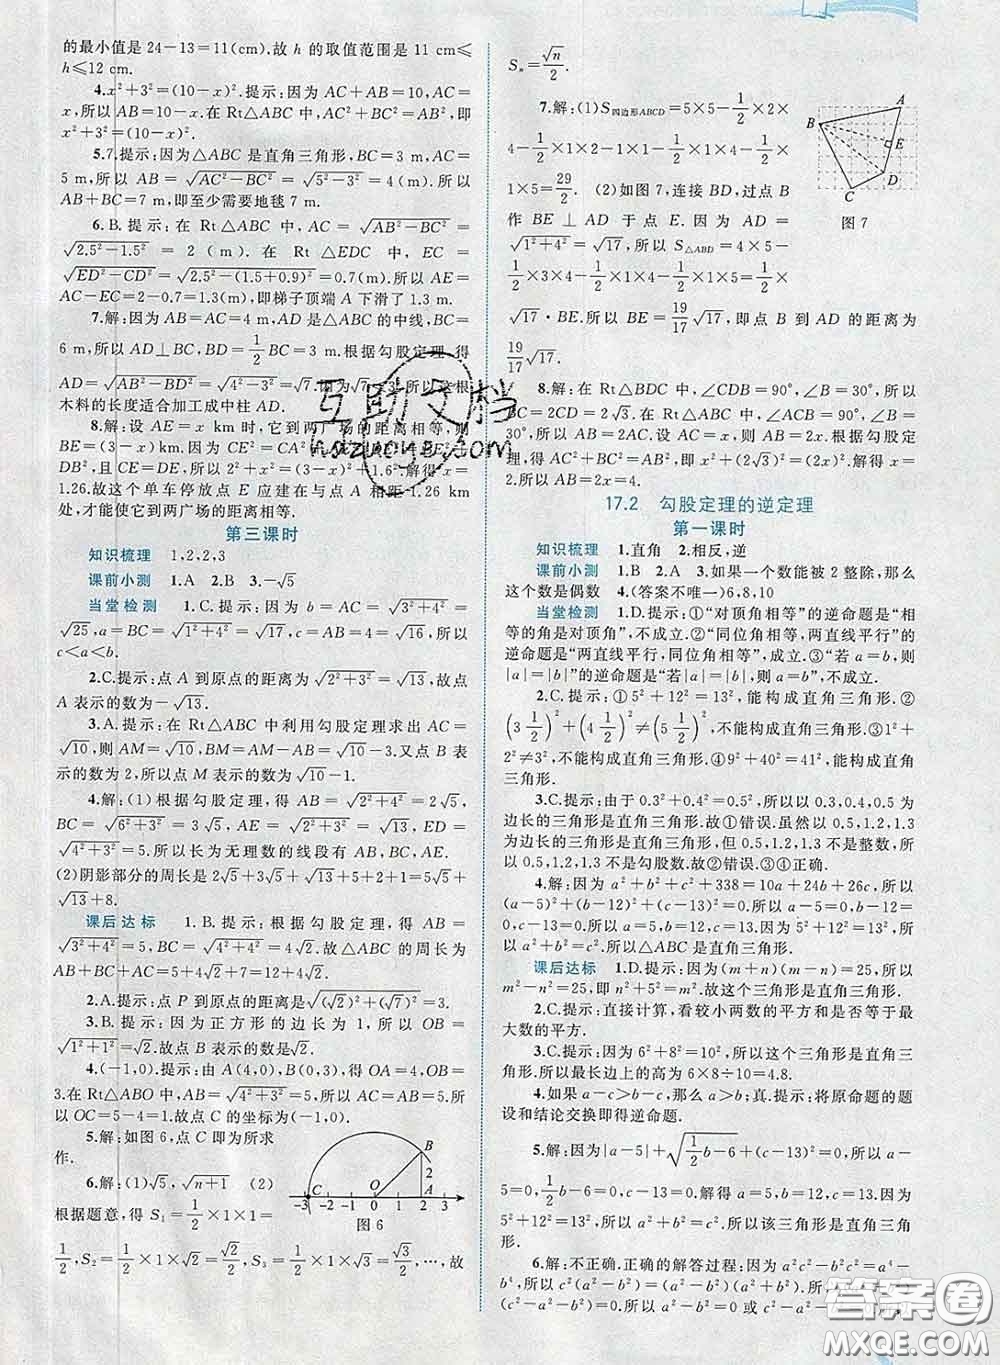 的最小值是24-13=11(cm).故 h 的取值范围是 11 cm≤
h≤12 cm.
4.x²+3²=(10-x)².提示:因为 AC+AB=10,AC=
x,所以 AB=10-x.在 Rt△ABC 中,AC²+BC²=AB²,即
x²+3²=(10-x)².
5.7.提示:因为△ABC 是直角三角形,BC=3 m,AC=
5 m,所以 AB=√(AC²-BC²)=√(5²-3²)=4(m).所以
AB+BC=7 m,即至少需要地毯 7 m.
6.B.提示:在 Rt△ABC 中,AC=√(AB²-BC²)=
√(2.5²-1.5²)=2(m).在 Rt△EDC 中,EC=
√(ED²-CD²)=√(2.5²-(1.5+0.9)²)=0.7(m).所以 AE=
AC-EC=2-0.7=1.3(m),即梯子顶端 A 下滑了 1.3 m.
7.解:因为 AB=AC=4 m,AD 是△ABC 的中线,BC=
6 m,所以 AD⊥BC,BD=1/2 BC=3 m.根据勾股定理,得
AD=√(AB²-BD²)=√(4²-3²)=√7.因为√7<3,所以这根
木料的长度适合加工成中柱 AD.
8.解:设 AE=x km 时,它到两广场的距离相等,则
BE=(3-x)km.由勾股定理,得 CE²=CA²
DB²,且 CE=DE,所以 2²+x²=(3-x)²+1.6².解得 x=
1.26.故这个单车停放点 E 应建在与点 A 相距 1.26 km
处,才能使它到两广场的距离相等.
第三课时
知识梳理 1,2,2,3
课前小测 1.A 2.B 3.-√5
当堂检测 1.C.提示:因为 b=AC=√(3²+4²)=
√25,a=BC=√(1²+4²)=√17,c=AB=√4²=√16,所以
c<a<b.
2.C.提示:点 A 到原点的距离为√(2²+3²)=√13,故点
A 表示的数为-√13.
3.A.提示:在 Rt△ABC 中利用勾股定理求出 AC=
√10,则 AM=√10,BM=AM-AB=√10-3.又点 B 表
示的数为 2,所以点 M 表示的数为√10-1.
4.解:(1)根据勾股定理,得 AB=√(2²+4²)=2√5,
BC=√(6²+3²)=3√5,AE=√(2²+3²)=√13,ED=
√(4²+3²)=5.所以长为无理数的线段有 AB,BC,AE.
(2)阴影部分的周长是 2√5+3√5+√13+5+2+1=5√5+
√13+8.
课后达标 1.B.提示:根据勾股定理,得 AB=
√(3²+4²)=5,BC=√(4²+4²)=4√2.故△ABC 的周长为
AB+BC+AC=5+4√2+7=12+4√2.
2.A.提示:点 P 到原点的距离是√((√2)²+(√7)²)=3.
3.B.提示:因为正方形的边长为 1,所以 OB=
√(1²+1²)=√2.故点 B 表示的数是√2.
4.(-1,0).提示:由 A(4,0),B(0,3),得 OA=4,OB=
3.在 Rt△ABO 中,AB=√(3²+4²)=5.所以 AC=AB=5.所
以 OC=5-4=1.故点 C 的坐标为(-1,0).
5.解:如图 6,点 C 即为所求
作.
6.解:(1)√5,√(n+1) (2)
根据题意,得 S₁=1/2×1×1=
-3 -2 -1 0 1 2 3
C O A B 2
图 6
1/2,S₂=1/2×1×√2=√2/2,S₃=1/2×1×√3=√3/2,…,故
Sₙ=√n/2.
7.解:(1)S四边形ABCD=5×5-1/2×2×
4-1/2×1×2-1/2×1×4-1/2×
1×5=29/2. (2)如图 7,连接 BD,过点 B
作 BE⊥AD 于点 E.因为 AD=
√(1²+4²)=√17,所以 S△ABD=4×5-
A
B
E
D
C
图 7
1/2×3×4-1/2×1×4-1/2×1×5=19/2=1/2×
√17·BE.所以 BE=19/17√17,即点 B 到 AD 的距离为
19/17√17.
8.解:在 Rt△BDC 中,∠CDB=90°,∠CBD=30°,所以
BC=2CD=2√3.在 Rt△ABC 中,∠ACB=90°,∠ABC=
30°,所以 AB=2AC.设 AC=x,则 AB=2x.根据勾股定
理,得 AC²+BC²=AB²,即 x²+(2√3)²=(2x)².解得 x=
2.所以 AC=2.
17.2 勾股定理的逆定理
第一课时
知识梳理 1.直角 2.相反,逆
课前小测 1.B 2.A 3.如果一个数能被 2 整除,那么
这个数是偶数 4.(答案不唯一)6,8,10
当堂检测 1.D.提示:①“对顶角相等”的逆命题是“相
等的角是对顶角”,不成立.②“同位角相等,两直线平行”的
逆命题是“两直线平行,同位角相等”,成立.③“若 a=b,则
|a|=|b|”的逆命题是“若|a|=|b|,则 a=b”,不成立.
2.C.提示:①5²+12²=13²,能构成直角三角形.②
(3 1/2)²+(4 1/2)²≠(5 1/2)²,不能构成直角三角形.③1²+
2²≠3²,不能构成直角三角形.④9²+40²=41²,能构成直角三角
形.
3.C.提示:由于 0.3²+0.4²=0.5²,所以以 0.3,0.4,0.5 为
边长的三角形是直角三角形.故①错误.虽然以 0.5,1.2,1.3
为边长的三角形是直角三角形,但 0.5,1.2,1.3 不是整数,所以
0.5,1.2,1.3 不是勾股数.故②错误.③④正确.
4.解:因为 a²+b²+c²+338=10a+24b+26c,所以
(a-5)²+(b-12)²+(c-13)²=0.所以 a-5=0,b-12=0,
c-13=0.所以 a=5,b=12,c=13.因为 5²+12²=13²,所以
a²+b²=c².所以△ABC 是直角三角形.
课后达标 1.D.提示:因为(m+n)(m-n)=25,所以
m²-n²=25,即 n²+5²=m².故这个三角形是直角三角形.
2.C.提示:直接计算,看较小两数的平方和是否等于最
大数的平方.
3.C.提示:因为 6²+8²=10²,所以这个三角形是直角三
角形.所以最长边上的高为 6×8÷10=4.8.
4.如果 a-c>b-c,那么 a>b;真.提示:将原命题的题
设和结论交换即得逆命题.
5.解:因为|a-5|+√(1/2 b-6)+(c-13)²=0,所以 a-
5=0,1/2 b-6=0,c-13=0.解得 a=5,b=12,c=13.因为
5²+12²=13²,所以 a²+b²=c².所以以该三角形是直角三
角形.
6.解:不正确.正确的解答过程:因为 a²c²-b²c²=a⁴-
b⁴,所以 c²(a²-b²)=(a²-b²)(a²+b²).所以(a²-b²)
(c²-a²-b²)=0.所以 a²-b²=0 或 c²-a²-b²=0.
互助文档
hazuone.com
答案圈
MXQE.COM